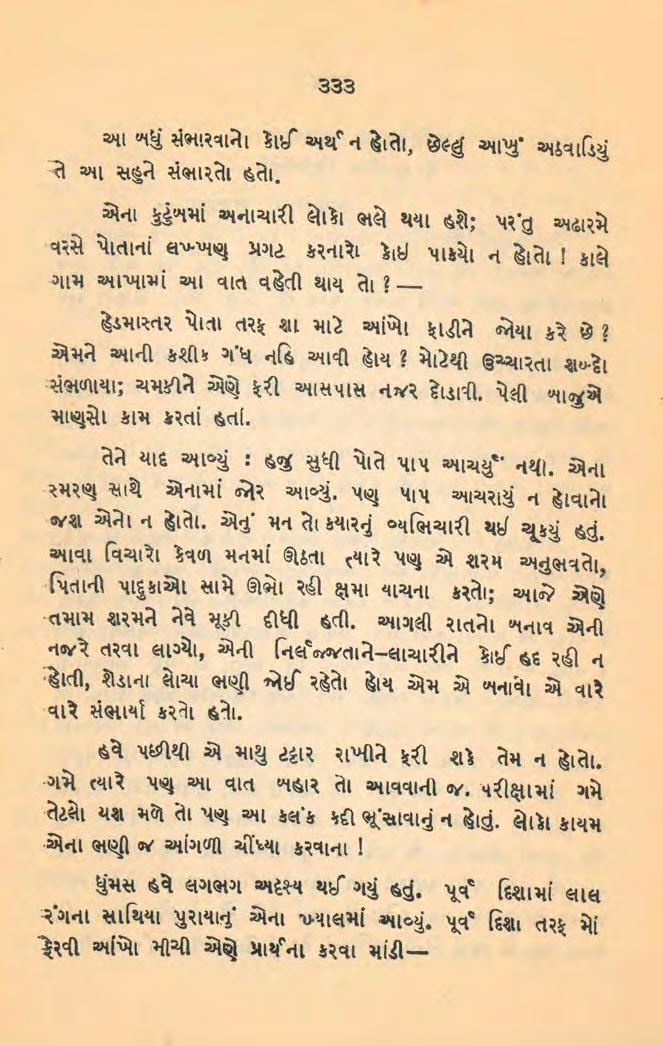 ૩૩૩
આ બધું સંભારવાનો કોઈ અર્થ ન હોતો, છેલ્લું આખું અઠવાડિયું
તે આ સહુને સંભારતો હતો.
એના કુટુંબમાં અનાચારી લોકો ભલે થયા હશે; પરંતુ અઢારમે
વરસે પોતાનાં લખ્ખણ પ્રગટ કરનારો કોઇ પાક્યો ન હોતો ! કાલે
ગામ આખામાં આ વાત વહેતી થાય તો ? —
હેડમાસ્તર પોતા તરફ શા માટે આંખો ફાડીને જોયા કરે છે ?
એમને આની કશીક ગંધ નહિ આવી હોય ? મોટેથી ઉચ્ચારતા શબ્દો
સંભળાયા; ચમકીને એણે ફરી આસપાસ નજર દોડાવી. પેલી બાજુએ
માણસો કામ કરતાં હતાં.
તેને યાદ આવ્યું : હજુ સુધી પોતે પાપ આચર્યું નથી. એના
સ્મરણ સાથે એનામાં જોર આવ્યું. પણ પાપ આચરાયું ન હોવાનો
જશ એનો ન હોતો. એનું મન તો કયારનું વ્યભિચારી થઈ ચૂકયું હતું.
આવા વિચારો કેવળ મનમાં ઊઠતા ત્યારે પણ એ શરમ અનુભવતો,
પિતાની પાદુકાઓ સામે ઊભો રહી ક્ષમા યાચના કરતો; આજે એણે
તમામ શરમને નેવે મૂકી દીધી હતી. આગલી રાતનો બનાવ એની
નજરે તરવા લાગ્યો, એની નિર્લજ્જતાને–લાચારીને કોઈ હદ રહી ન
હોતી, શેડાના લોચા ભણી જોઈ રહેતો હોય એમ એ બનાવો એ વારે
વારે સંભાર્યા કરતો હતો.
હવે પછીથી એ માથુ ટટ્ટાર રાખીને ફરી શકે તેમ ન હોતો.
ગમે ત્યારે પણ આ વાત બહાર તો આવવાની જ. પરીક્ષામાં ગમે
તેટલો યશ મળે તો પણ આ કલંક કદી ભૂંસાવાનું ન હોતું. લોકો કાયમ
એના ભણી જ આંગળી ચીંધ્યા કરવાના !
ધુંમસ હવે લગભગ અદૃશ્ય થઈ ગયું હતું. પૂર્વ દિશામાં લાલ
રંગના સાથિયા પુરાયાનું એના ખ્યાલમાં આવ્યું. પૂર્વ દિશા તરફ મોં
ફેરવી આંખો મીચી એણે પ્રાર્થના કરવા માંડી—